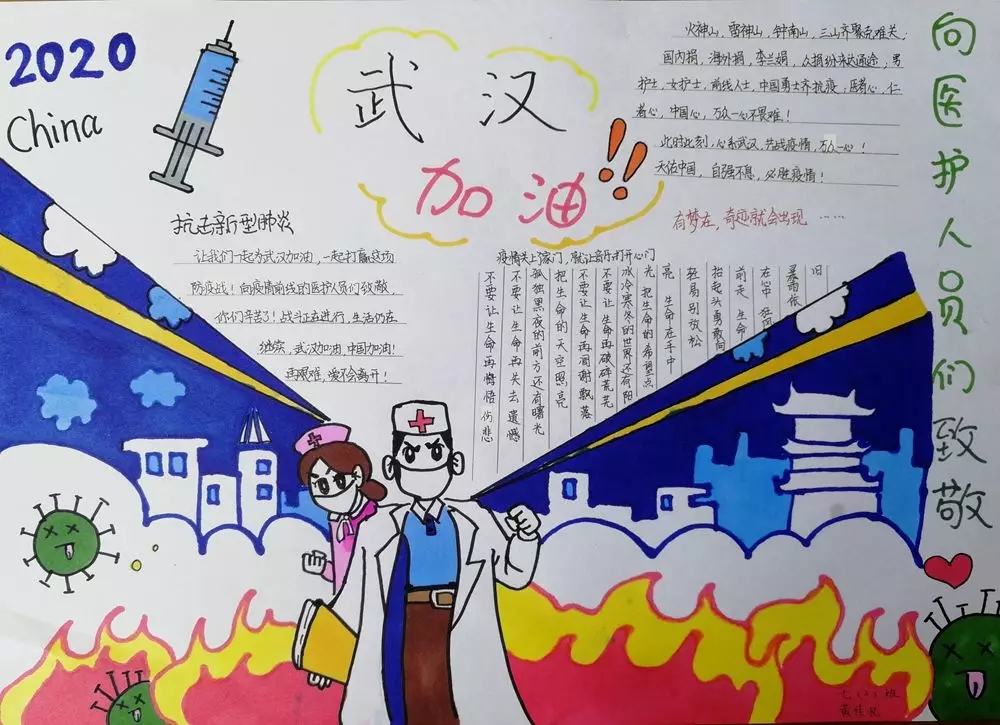 2020
China
武汉
加油!!
火神山，雷神山，钟南山，三山齐聚克难关；
国内捐，海外捐，李兰娟，众捐纷纷达通途；男
护士，女护士，前线人士，中国勇士齐抗疫；医者心，仁
者心，中国心，万众一心不畏难！
此时此刻，心系武汉，共战疫情，万众一心！
天佑中国，自强不息，必胜疫情！
有梦在，奇迹就会出现 ……
向医护人员们致敬
抗击新型肺炎
让我们一起为武汉加油，一起打赢这场
防疫战！向疫情前线的医护人员们致敬
你们辛苦了！战斗正在进行，生活仍在
继续，武汉加油，中国加油！
再艰难，爱不会离开！
疫情关上了家门，就让音乐打开心门
不要让生命再悔悟伤悲
不要让生命再失去遗憾
孤独黑夜的前方还有曙光
把生命的天空照亮
不要让生命再凋谢飘落
不要让生命再破碎荒芜
冰冷寒冬的世界还有阳
光 把生命的希望点
亮 生命在手中
轻易别放松
抬起头勇敢向
前走 生命
在心中 狂风
暴雨依
旧